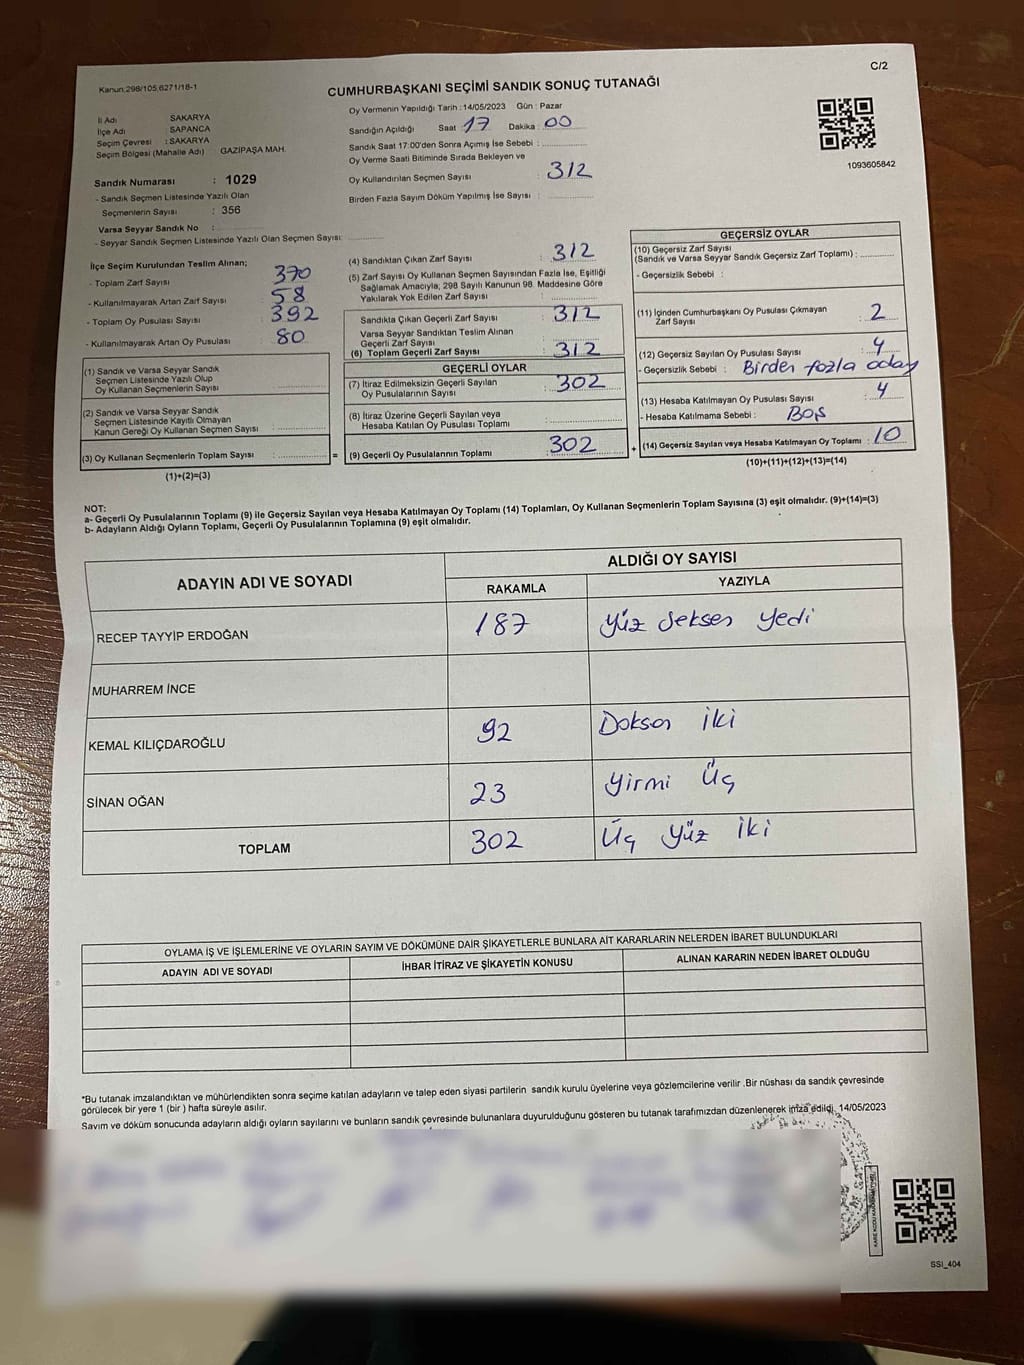 C/2
Kanun:298/105,6271/18-1
CUMHURBAŞKANI SEÇİMİ SANDIK SONUÇ TUTANAĞI
İl Adı SAKARYA
İlçe Adı : SAPANCA
Seçim Çevresi : SAKARYA
Seçim Bölgesi (Mahalle Adı) GAZİPAŞA MAH.
Sandık Numarası : 1029
- Sandık Seçmen Listesinde Yazılı Olan
Seçmenlerin Sayısı : 356
Varsa Seyyar Sandık No :
- Seyyar Sandık Seçmen Listesinde Yazılı Olan Seçmen Sayısı:
Oy Vermenin Yapıldığı Tarih : 14/05/2023 Gün : Pazar
Sandığın Açıldığı Saat 17 Dakika : 00
Sandık Saat 17:00'den Sonra Açımış İse Sebebi :
Oy Verme Saati Bitiminde Sırada Bekleyen ve
Oy Kullandırılan Seçmen Sayısı : 312
Birden Fazla Sayım Döküm Yapılmış İse Sayısı :
1093605842
İlçe Seçim Kurulundan Teslim Alınan;
- Toplam Zarf Sayısı : 370
- Kullanılmayarak Artan Zarf Sayısı : 58
- Toplam Oy Pusulası Sayısı : 392
- Kullanılmayarak Artan Oy Pusulası : 80
(1) Sandık ve Varsa Seyyar Sandık
Seçmen Listesinde Yazılı Olup
Oy Kullanan Seçmenlerin Sayısı :
(2) Sandık ve Varsa Seyyar Sandık
Seçmen Listesinde Kayıtlı Olmayan
Kanun Gereği Oy Kullanan Seçmen Sayısı :
(3) Oy Kullanan Seçmenlerin Toplam Sayısı : =
(1)+(2)=(3)
(4) Sandıktan Çıkan Zarf Sayısı : 312
(5) Zarf Sayısı Oy Kullanan Seçmen Sayısından Fazla İse, Eşitliği
Sağlamak Amacıyla, 298 Sayılı Kanunun 98. Maddesine Göre
Yakılarak Yok Edilen Zarf Sayısı :
Sandıkta Çıkan Geçerli Zarf Sayısı : 312
Varsa Seyyar Sandıktan Teslim Alınan
Geçerli Zarf Sayısı :
(6) Toplam Geçerli Zarf Sayısı : 312
GEÇERLİ OYLAR
(7) İtiraz Edilmeksizin Geçerli Sayılan
Oy Pusulalarının Sayısı : 302
(8) İtiraz Üzerine Geçerli Sayılan veya
Hesaba Katılan Oy Pusulası Toplamı :
(9) Geçerli Oy Pusulalarının Toplamı : 302 +
GEÇERSİZ OYLAR
(10) Geçersiz Zarf Sayısı
(Sandık ve Varsa Seyyar Sandık Geçersiz Zarf Toplamı) :
- Geçersizlik Sebebi :
(11) İçinden Cumhurbaşkanı Oy Pusulası Çıkmayan
Zarf Sayısı : 2
(12) Geçersiz Sayılan Oy Pusulası Sayısı : 4
- Geçersizlik Sebebi : Birden fazla aday
(13) Hesaba Katılmayan Oy Pusulası Sayısı : 4
- Hesaba Katılmama Sebebi : BOŞ
(14) Geçersiz Sayılan veya Hesaba Katılmayan Oy Toplamı : 10
(10)+(11)+(12)+(13)=(14)
NOT:
a- Geçerli Oy Pusulalarının Toplamı (9) ile Geçersiz Sayılan veya Hesaba Katılmayan Oy Toplamı (14) Toplamları, Oy Kullanan Seçmenlerin Toplam Sayısına (3) eşit olmalıdır. (9)+(14)=(3)
b- Adayların Aldığı Oyların Toplamı, Geçerli Oy Pusulalarının Toplamına (9) eşit olmalıdır.
ADAYIN ADI VE SOYADI ALDIĞI OY SAYISI
RAKAMLA YAZIYLA
RECEP TAYYİP ERDOĞAN 187 Yüz Seksen Yedi
MUHARREM İNCE
KEMAL KILIÇDAROĞLU 92 Doksan İki
SİNAN OĞAN 23 Yirmi Üç
TOPLAM 302 Üç Yüz İki
OYLAMA İŞ VE İŞLEMLERİNE VE OYLARIN SAYIM VE DÖKÜMÜNE DAİR ŞİKAYETLERLE BUNLARA AİT KARARLARIN NELERDEN İBARET BULUNDUKLARI
ADAYIN ADI VE SOYADI İHBAR İTİRAZ VE ŞİKAYETİN KONUSU ALINAN KARARIN NEDEN İBARET OLDUĞU
*Bu tutanak imzalandıktan ve mühürlendikten sonra seçime katılan adayların ve talep eden siyasi partilerin sandık kurulu üyelerine veya gözlemcilerine verilir .Bir nüshası da sandık çevresinde
görülecek bir yere 1 (bir ) hafta süreyle asılır.
Sayım ve döküm sonucunda adayların aldığı oyların sayılarını ve bunların sandık çevresinde bulunanlara duyurulduğunu gösteren bu tutanak tarafımızdan düzenlenerek imza edildi. 14/05/2023
SSI_404